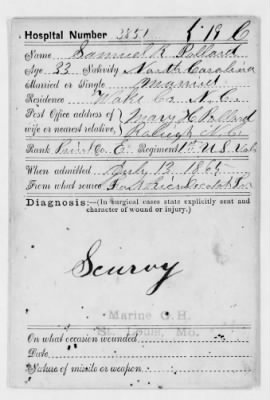 5 19 C
Hospital Number 3851
Name Samuel K Pollard
Age 33 Nativity North Carolina
Married or Single Married
Residence Wake Co. N. C.
Post Office address of wife or nearest relative, Mary H Pollard
Raleigh N. C.
Rank Private Co. E Regiment 1st U. S. Vols
When admitted July 13 1865
From what source
Diagnosis:—(In surgical cases states explicitly seat and
character of wound or injury.)
Scurvy
Marine G. H.
St. Louis, Mo.
On what occasion wounded
Date
Nature of missile or weapon